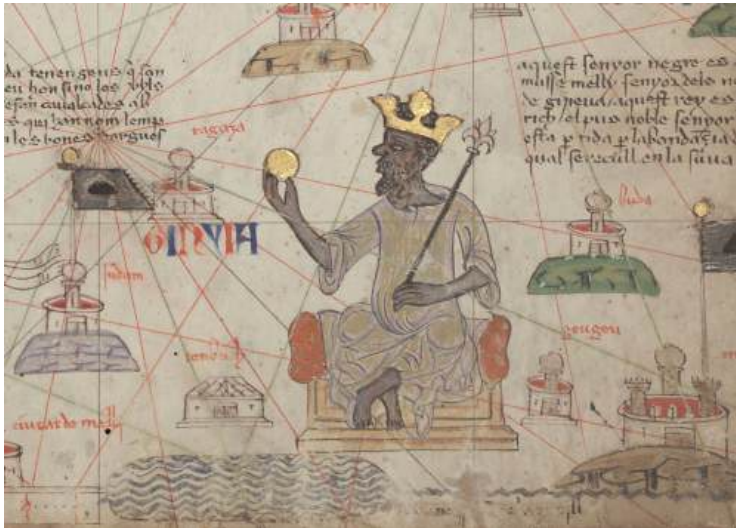 da tenen gens q̃ son
eu hon sino los uyls
esan caualcades ab
s qui han nom lemp
n les bones dargues
tagaza
GINVIA
sudam
tenbuch
ciutat de melli
aquest senyor negre es
musse melly senyor dels ne
de gineua aquest rey es
rich el pus noble senyor
esta ꝑtida ꝑ labondazia d
qual se recull en la sua
buda
geugeu